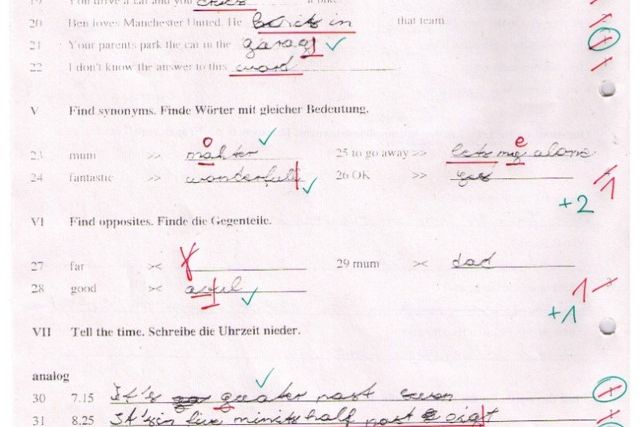 You drive a car and you
20 Ben loves Manchester United. He kicks in that team.
21 Your parents park the car in the garag
22 I don't know the answer to this word
V Find synonyms. Finde Wörter mit gleicher Bedeutung.
23 mum >> mahter o 25 to go away >> lets my alone e
24 fantastic >> wonderfull 26 OK >> yes 1
+2
VI Find opposites. Finde die Gegenteile.
27 far >< 29 mum >< dad
28 good >< awful 1
+1
VII Tell the time. Schreibe die Uhrzeit nieder.
analog
30 7.15 It's queater past seven
31 8.25 It's in five minits half past eigt